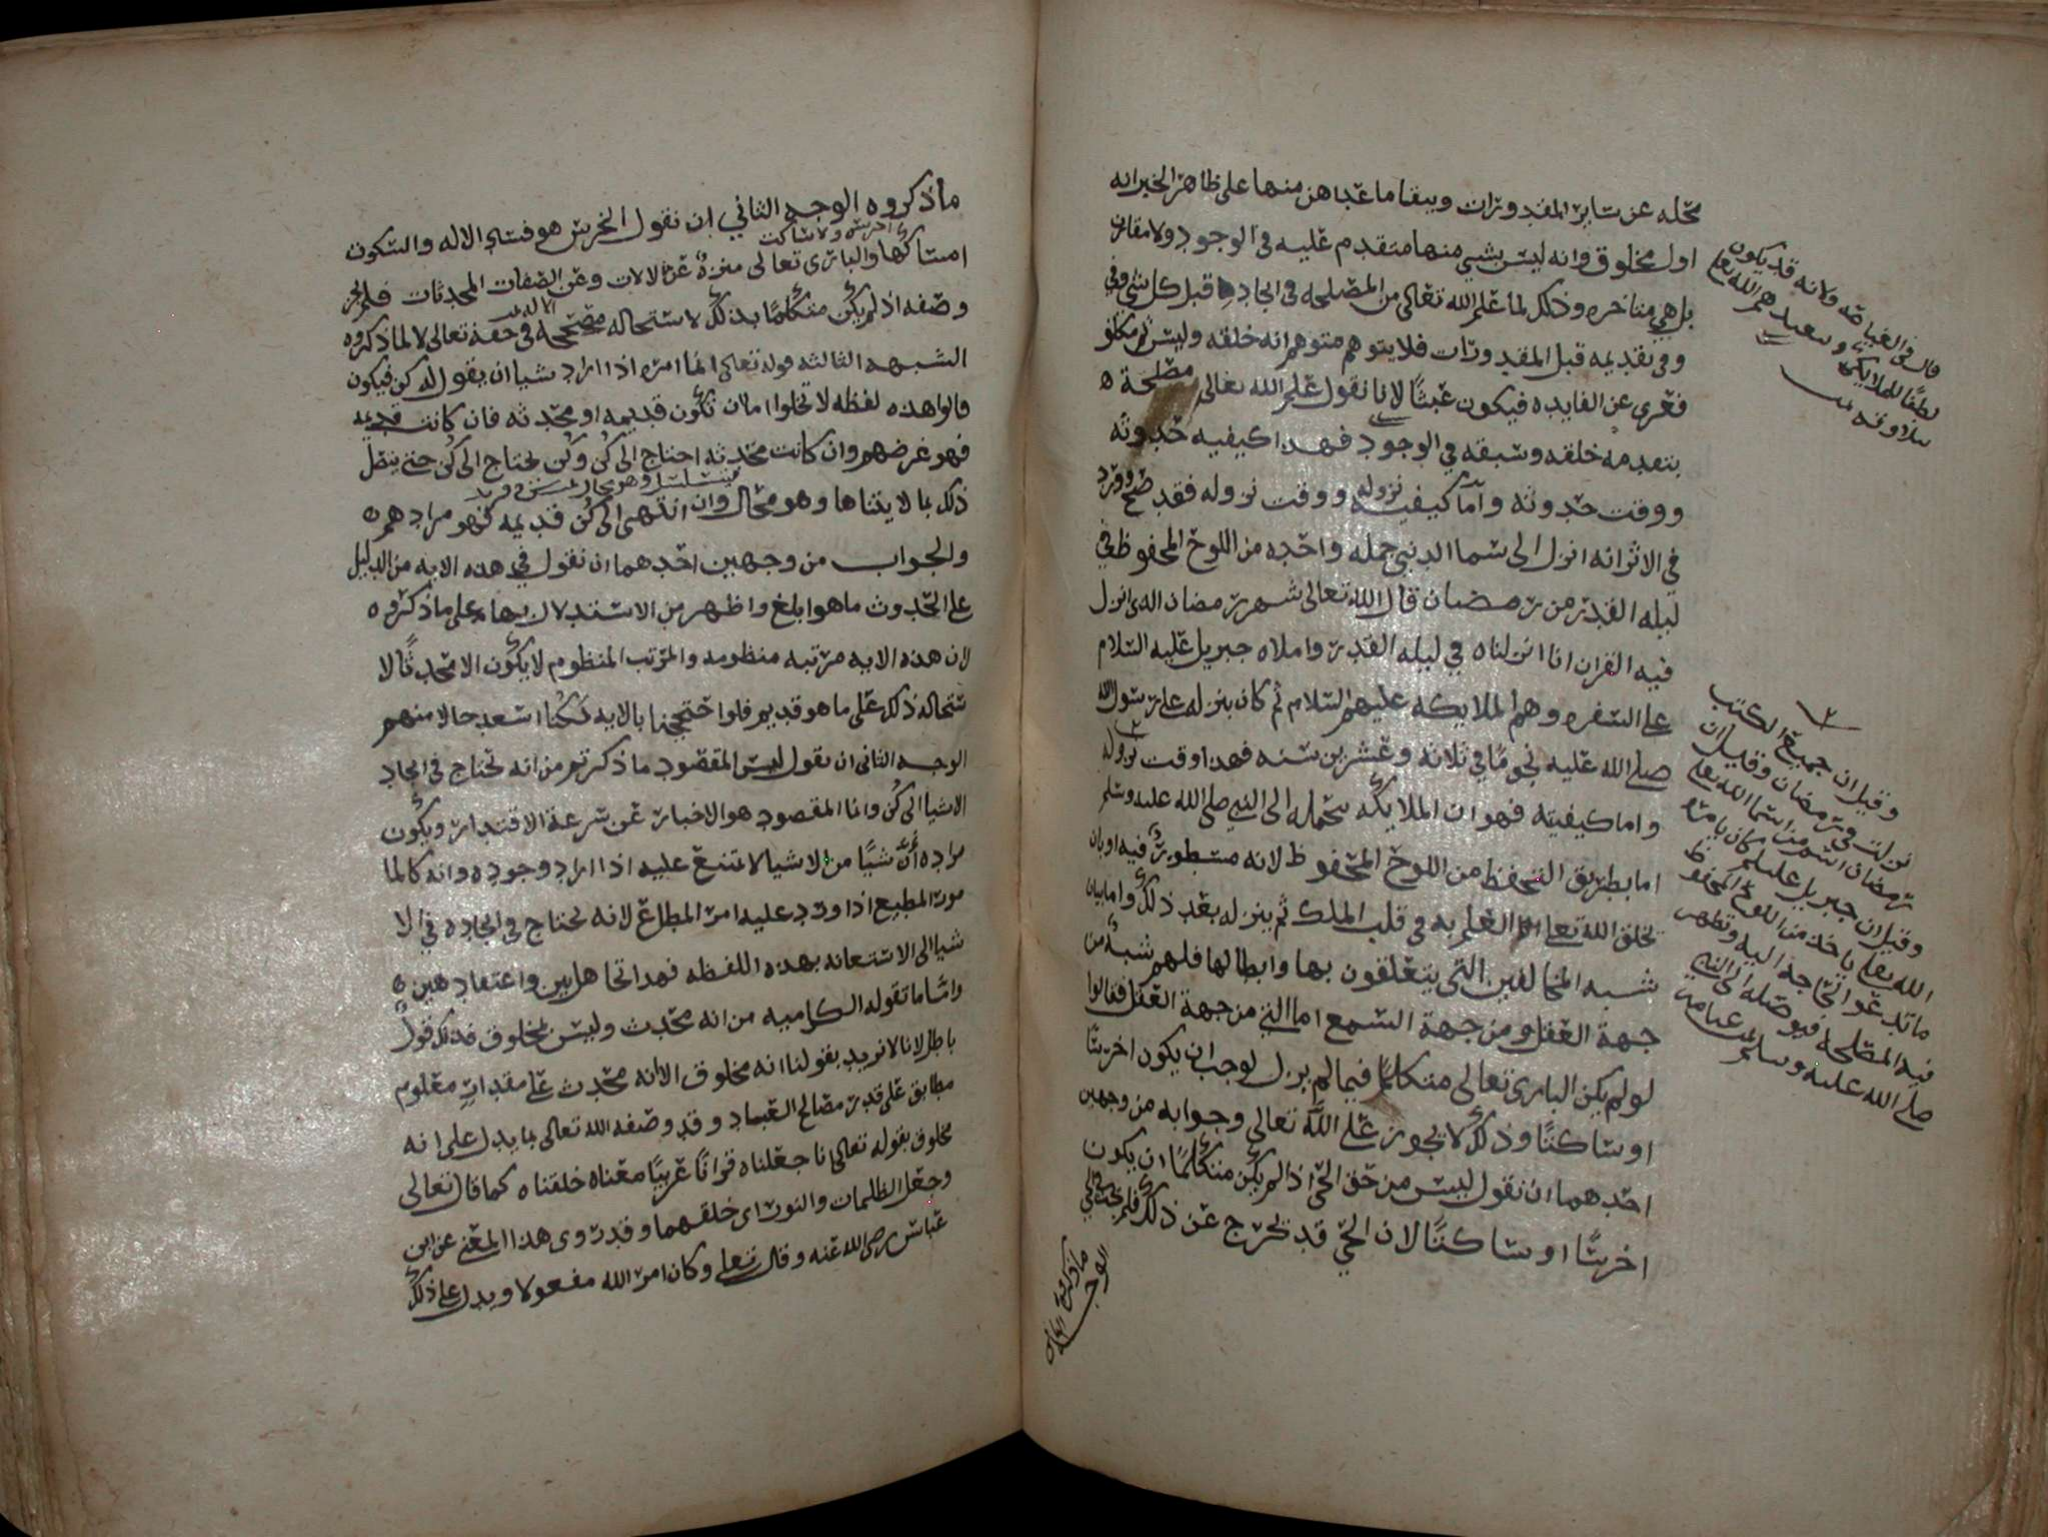 محله عن ساير المقدورات ويبقا ما عداهن منها على ظاهر الخبر انه
اول مخلوق وانه ليس بشي منها متقدم عليه في الوجود ولا مقارن
بل هي متاخره وذلك لما علم الله تعالى من المصلحه في ايجاده قبل كل شي وفي
وفي تقديمه قبل المقدورات فلا يتوهم متوهم انه خلقه وليس ثم مكلف
فعرى عن الفايده فيكون عبثا لانا نقول علم الله تعالى مصلحة ه
بتقدمه خلقه وسبقه في الوجود فهذا كيفيه حدوثه
ووقت حدوثه واما كيفيه نزوله ووقت نزوله فقد صح وورد
في الاثر انه انزل الى سما الدنيى جمله واحده من اللوح المحفوظ في
ليله القدر من رمضان قال الله تعالى شهر رمضان الذى انزل
فيه القران انا انزلناه في ليله القدر واملاه جبريل عليه السلام
على السفره وهم الملايكه عليهم السلام ثم كان ينزله على رسول الله
صلى الله عليه نجوما في ثلاثه وعشرين سنه فهذا وقت نزوله
واما كيفيته فهو ان الملايكه تتحمله الى النبي صلى الله عليه وسلم
اما بطريق التحفظ من اللوح المحفوظ لانه مسطور فيه او بان
يخلق الله تعالى العلم به في قلب الملك ثم ينزله بعد ذلك واما بيان
شبه المخالفين التي يتعلقون بها وابطالها فلهم شبه من
جهة العقل ومن جهة السمع اما التي من جهة العقل فقالوا
لو لم يكن البارى تعالى متكلما فيما لم يزل لوجب ان يكون اخرسا
او ساكتا وذلك لا يجوز على الله تعالى وجوابه من وجهين
احدهما ان نقول ليس من حق الحي اذا لم يكن متكلما ان يكون
اخرسا او ساكتا لان الحي قد يخرج عن ذلك فلم يجب
ماذكروه
الوجه الثاني
وقيل ان جميع الكتب
نزلت في رمضان وقيل ان
رمضان اسم من اسما الله تعالى
وقيل ان جبريل عليلم كان يامره
الله تعالى ياخذ من اللوح المحفوظ
ما تدعوا الحاجة اليه وتظهر
فيه المصلحه فيوصله الى النبي
صلى الله عليه وسلم
قال في الغياصه ولانه قد يكون
لطفا للملايكه وتعبدهم الله تعالى
ماذكروه الوجه الثاني ان نقول الخرس هو فساد الاله والسكون
اخرس ولا ساكت
امساكها والبارى تعالى منزه عن الالات وعن الصفات المحدثات فلم يجز
وصفه اذ لم يكن متكلما بذلك لاستحاله مصححه في حقه تعالى لا لما ذكروه
الشبهه الثالثه قوله تعالى انما امره اذا اراد شيا ان يقول له كن فيكون
قالوا هذه لفظه لا تخلوا اما ان تكون قديمه او محدثه فان كانت قديمه
فهو غرضهم وان كانت محدثه احتاج الى كن وكن يحتاج الى كن حتى يتصل
ذلك بما لا يتناها وهو محال وان انتهى الى كن قديمه فهو مرادهم ه
والجواب من وجهين احدهما ان نقول في هذه الايه من الدليل
على الحدوث ما هو ابلغ واظهر من الاستدلال بها على ماذكروه
لان هذه الايه مرتبه منظومه والمرتب المنظوم لا يكون الا محدثا لا
ستحاله ذلك على ما هو قديم فلوا حتججنا بالايه لكنا اسعد حالا منهم
الوجه الثاني ان نقول ليس المقصود ما ذكرتم من انه يحتاج في ايجاد
الاشيا الى كن وانما المقصود هو الاخبار عن سرعة الاقتدار ويكون
مراده ان شيا من الاشيا لا تمتنع عليه اذا اراد وجوده وانه كالما
مور المطيع اذا ورد عليه امر المطاع لانه يحتاج في ايجاده في الا
شيا الى الاستعانه بهذه اللفظه فهذا تجاهل بين واعتقاد هين ه
واما ما تقوله الكراميه من انه محدث وليس بمخلوق فذلك قول
باطل لانا لا نريد بقولنا انه مخلوق الا انه محدث على مقدار معلوم
مطابق على قدر مصالح العباد وقد وصفه الله تعالى بما يدل على انه
مخلوق بقوله تعالى انا جعلناه قرانا عربيا معناه خلقناه كما قال تعالى
وجعل الظلمات والنور اى خلقهما وقد روى هذا المعنى عن ابن
عباس رضي الله عنه وقال تعالى وكان امر الله مفعولا ويدل على ذلك